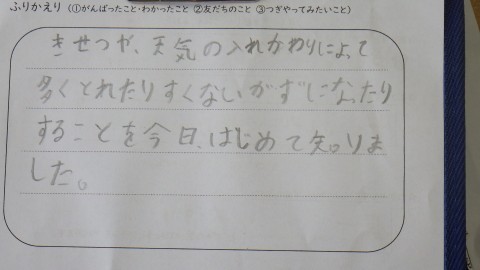 ふりかえり（①がんばったこと・わかったこと ②友だちのこと ③つぎやってみたいこと）
きせつや、天気の入れかわりによって
多くとれたりすくないかずになったり
することを今日、はじめて知りま
した。